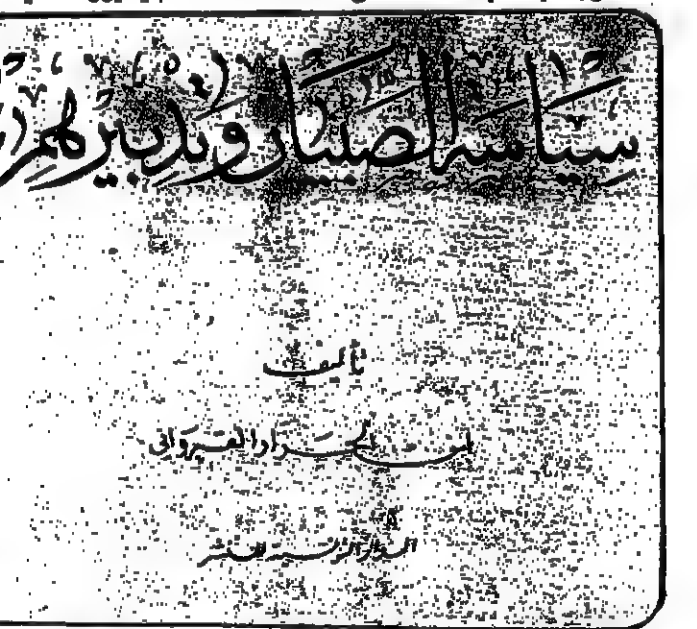 سِيَاسَة الصِّبْيَان وَتَدْبِيرُهُمْ
تأليف
ابن الجزار القيرواني
الدار التونسية للنشر